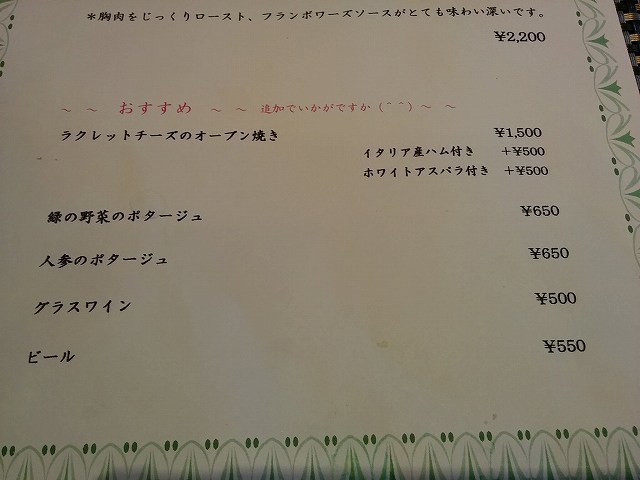 ＊胸肉をじっくりロースト、フランボワーズソースがとても味わい深いです。
¥2,200
～ ～ おすすめ ～ ～ 追加でいかがですか (^^) ～ ～
ラクレットチーズのオーブン焼き ¥1,500
イタリア産ハム付き ＋¥500
ホワイトアスパラ付き ＋¥500
緑の野菜のポタージュ ¥650
人参のポタージュ ¥650
グラスワイン ¥500
ビール ¥550